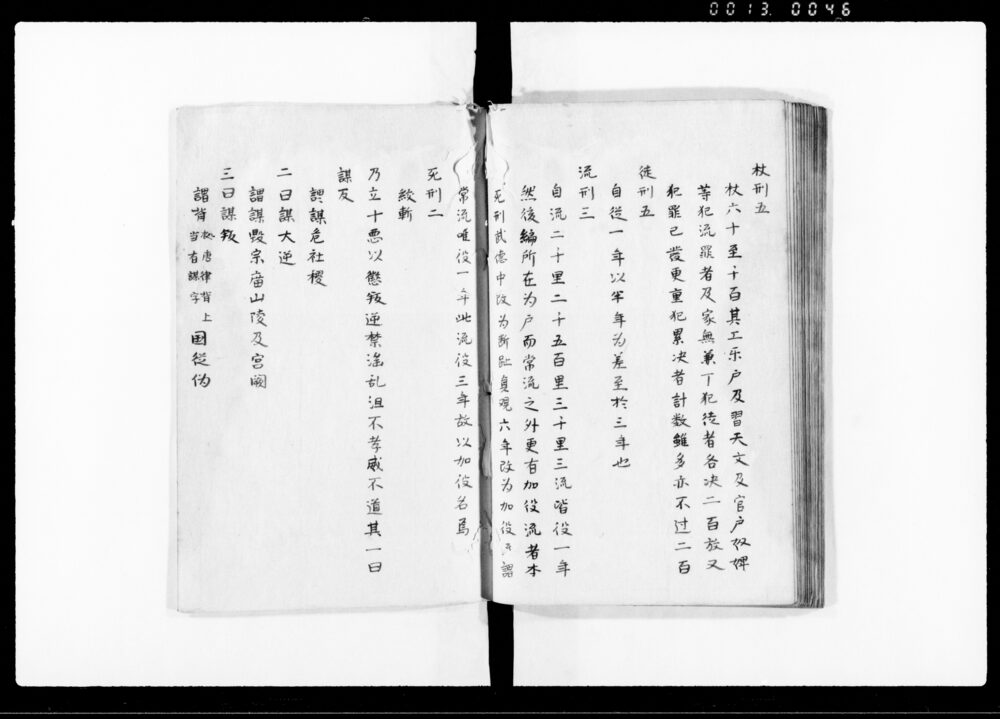 0013 0046
杖刑五
杖六十至于百其工乐户及習天文及官户奴婢
等犯流罪者及家無兼丁犯徒者各决二百放又
犯罪已發更重犯累决者計数雖多亦不过二百
徒刑五
自徒一年以半年为差至於三年也
流刑三
自流二千里二千五百里三千里三流皆役一年
然後編所在为户而常流之外更有加役流者本
死刑武德中改为断趾貞观六年改为加役流謂
常流唯役一年此流役三年故以加役名焉
死刑二
絞斬
乃立十悪以懲叛逆禁淫乱沮不孝威不道其一曰
謀反
謂謀危社稷
二曰謀大逆
謂謀毁宗庙山陵及宫阙
三曰謀叛
謂背按唐律背上当有謀字国從伪